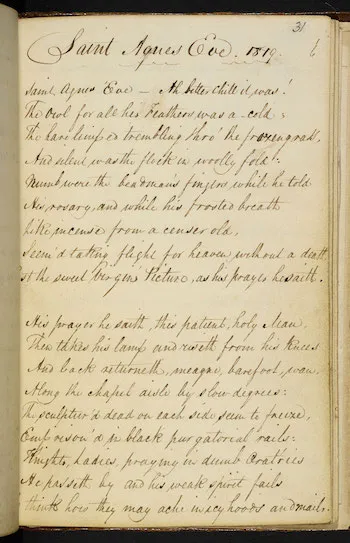 31
Saint Agnes Eve. 1819.
Saint Agnes' Eve — Ah bitter chill it was!
The Owl for all his Feathers was a-cold;
The hare limp'd trembling thro' the frozen grass,
And silent was the flock in woolly fold:
Numb were the beadman's fingers while he told
His rosary, and while his frosted breath
Like incense from a censer old,
Seem'd taking flight for heaven, without a death,
the sweet Virgin's Picture, as his prayer he saith.
His prayer he saith, this patient, holy Man.
Then takes his lamp and riseth from his Knees
And back returneth, meagre, barefoot, wan,
Along the chapel aisle by slow degrees:
The sculptur'd dead on each side seem to freeze,
Emprison'd in black purgatorial rails:
Knights, Ladies, praying in dumb Orat'ries
He passeth by and his weak spirit fails
think how they may ache in icy hoods and mails.